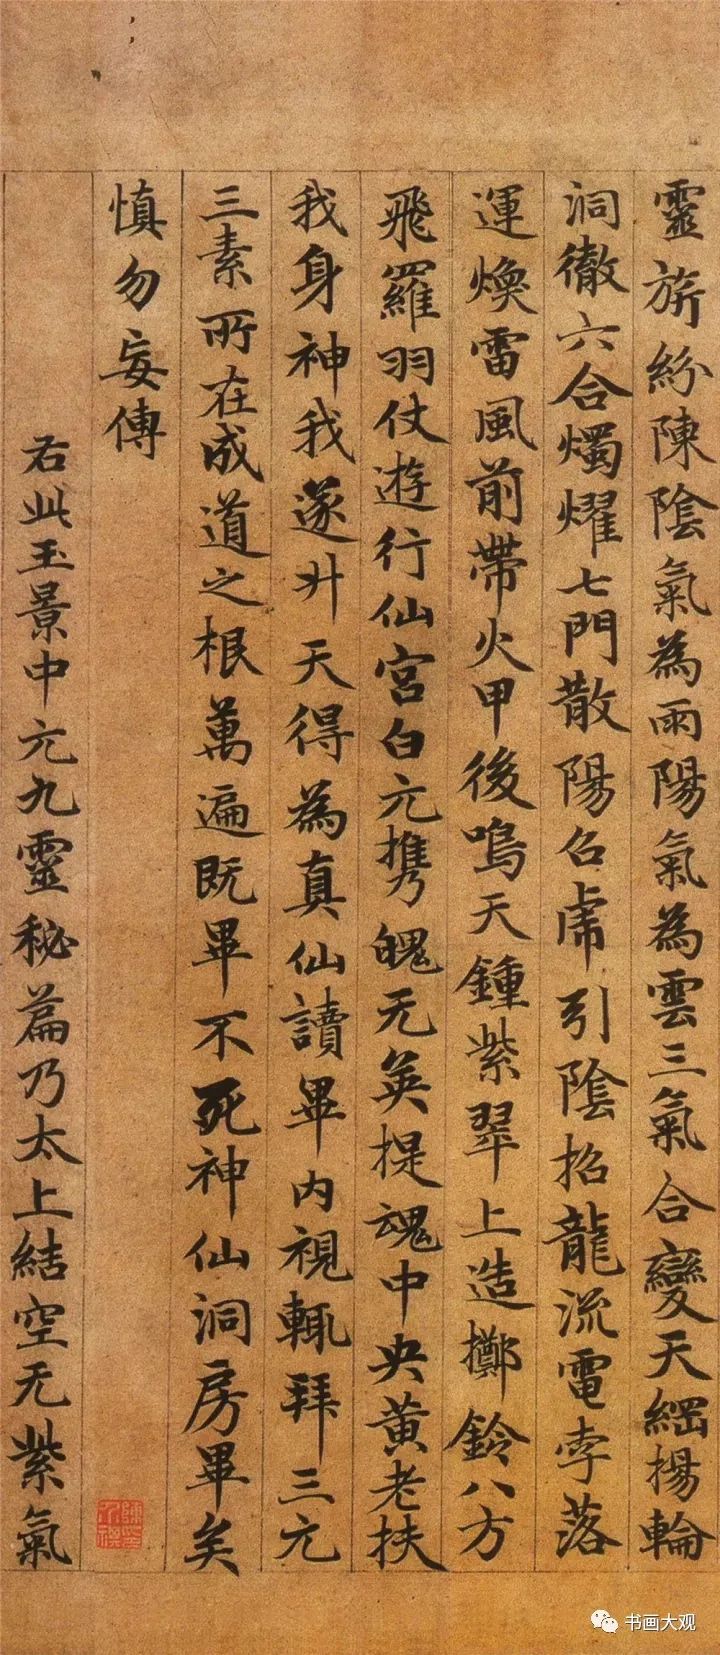 靈旂紛陳陰氣為雨陽氣為雲三氣合變天綱揚輪
洞徹六合燭燿七門散陽召虎引陰招龍流電孛落
運煥雷風前帶火甲後鳴天鍾紫翠上造擲鈴八方
飛羅羽仗遊行仙宮白元攜魄无英提魂中央黃老扶
我身神我遂升天得為真仙讀畢內視輒拜三元
三素所在成道之根萬遍既畢不死神仙洞房畢矣
慎勿妄傳
右此玉景中元九靈秘篇乃太上結空无紫氣
书画大观